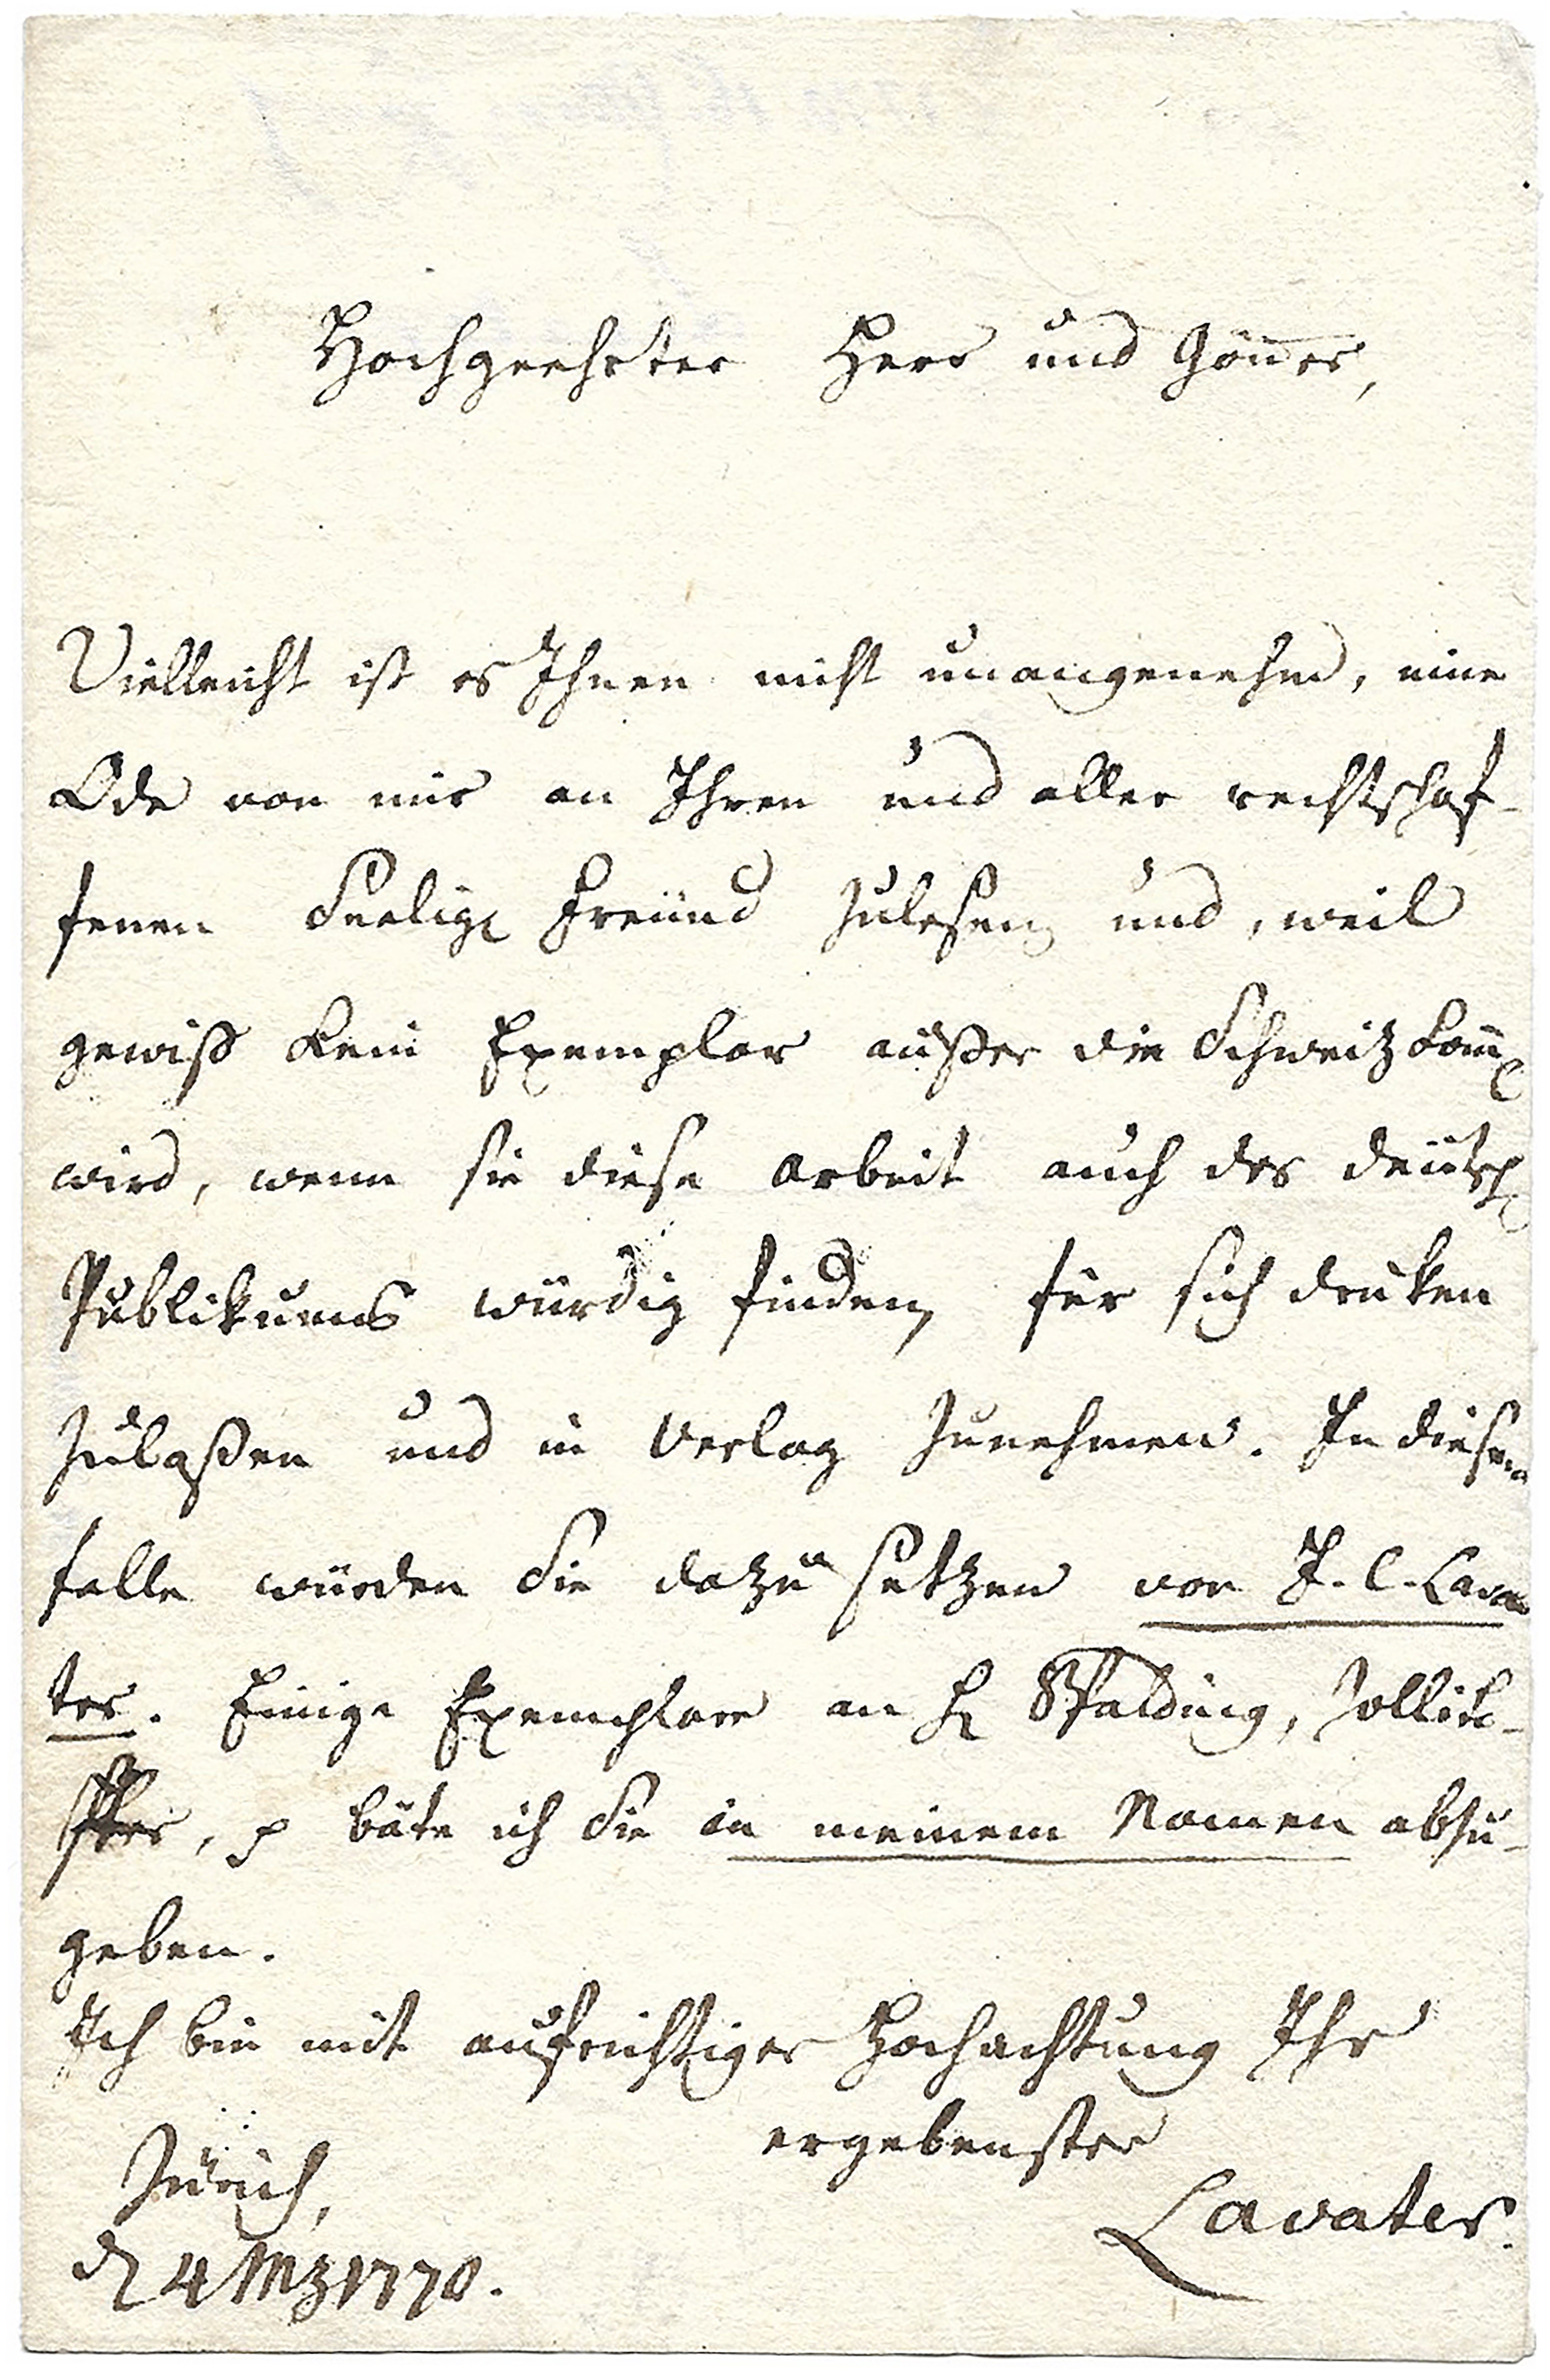 Hochgeehrter Herr und Gönner,
Vielleicht ist es Ihnen nicht unangenehm, eine
Ode von mir an Ihren und aller rechtschaf-
fenen Seelige Freünd zulesen und, weil
gewiß kein Exemplar außer die Schweiz kom̄e
wird, wenn sie diese Arbeit auch des deütsche
Publikums würdig finden, für sich druken
zulaßen und in Verlag zunehmen. In diesem
falle würden Sie dazu setzen von J. C. Lava
ter. Einige Exemplare an H Spalding, Zolliko-
, p bäte ich Sie in meinem Namen abzu-
geben.
Ich bin mit aufrichtiger Hochachtung Ihr
ergebenster
Lavater.
Zürich,
d 4 Mz 1770.